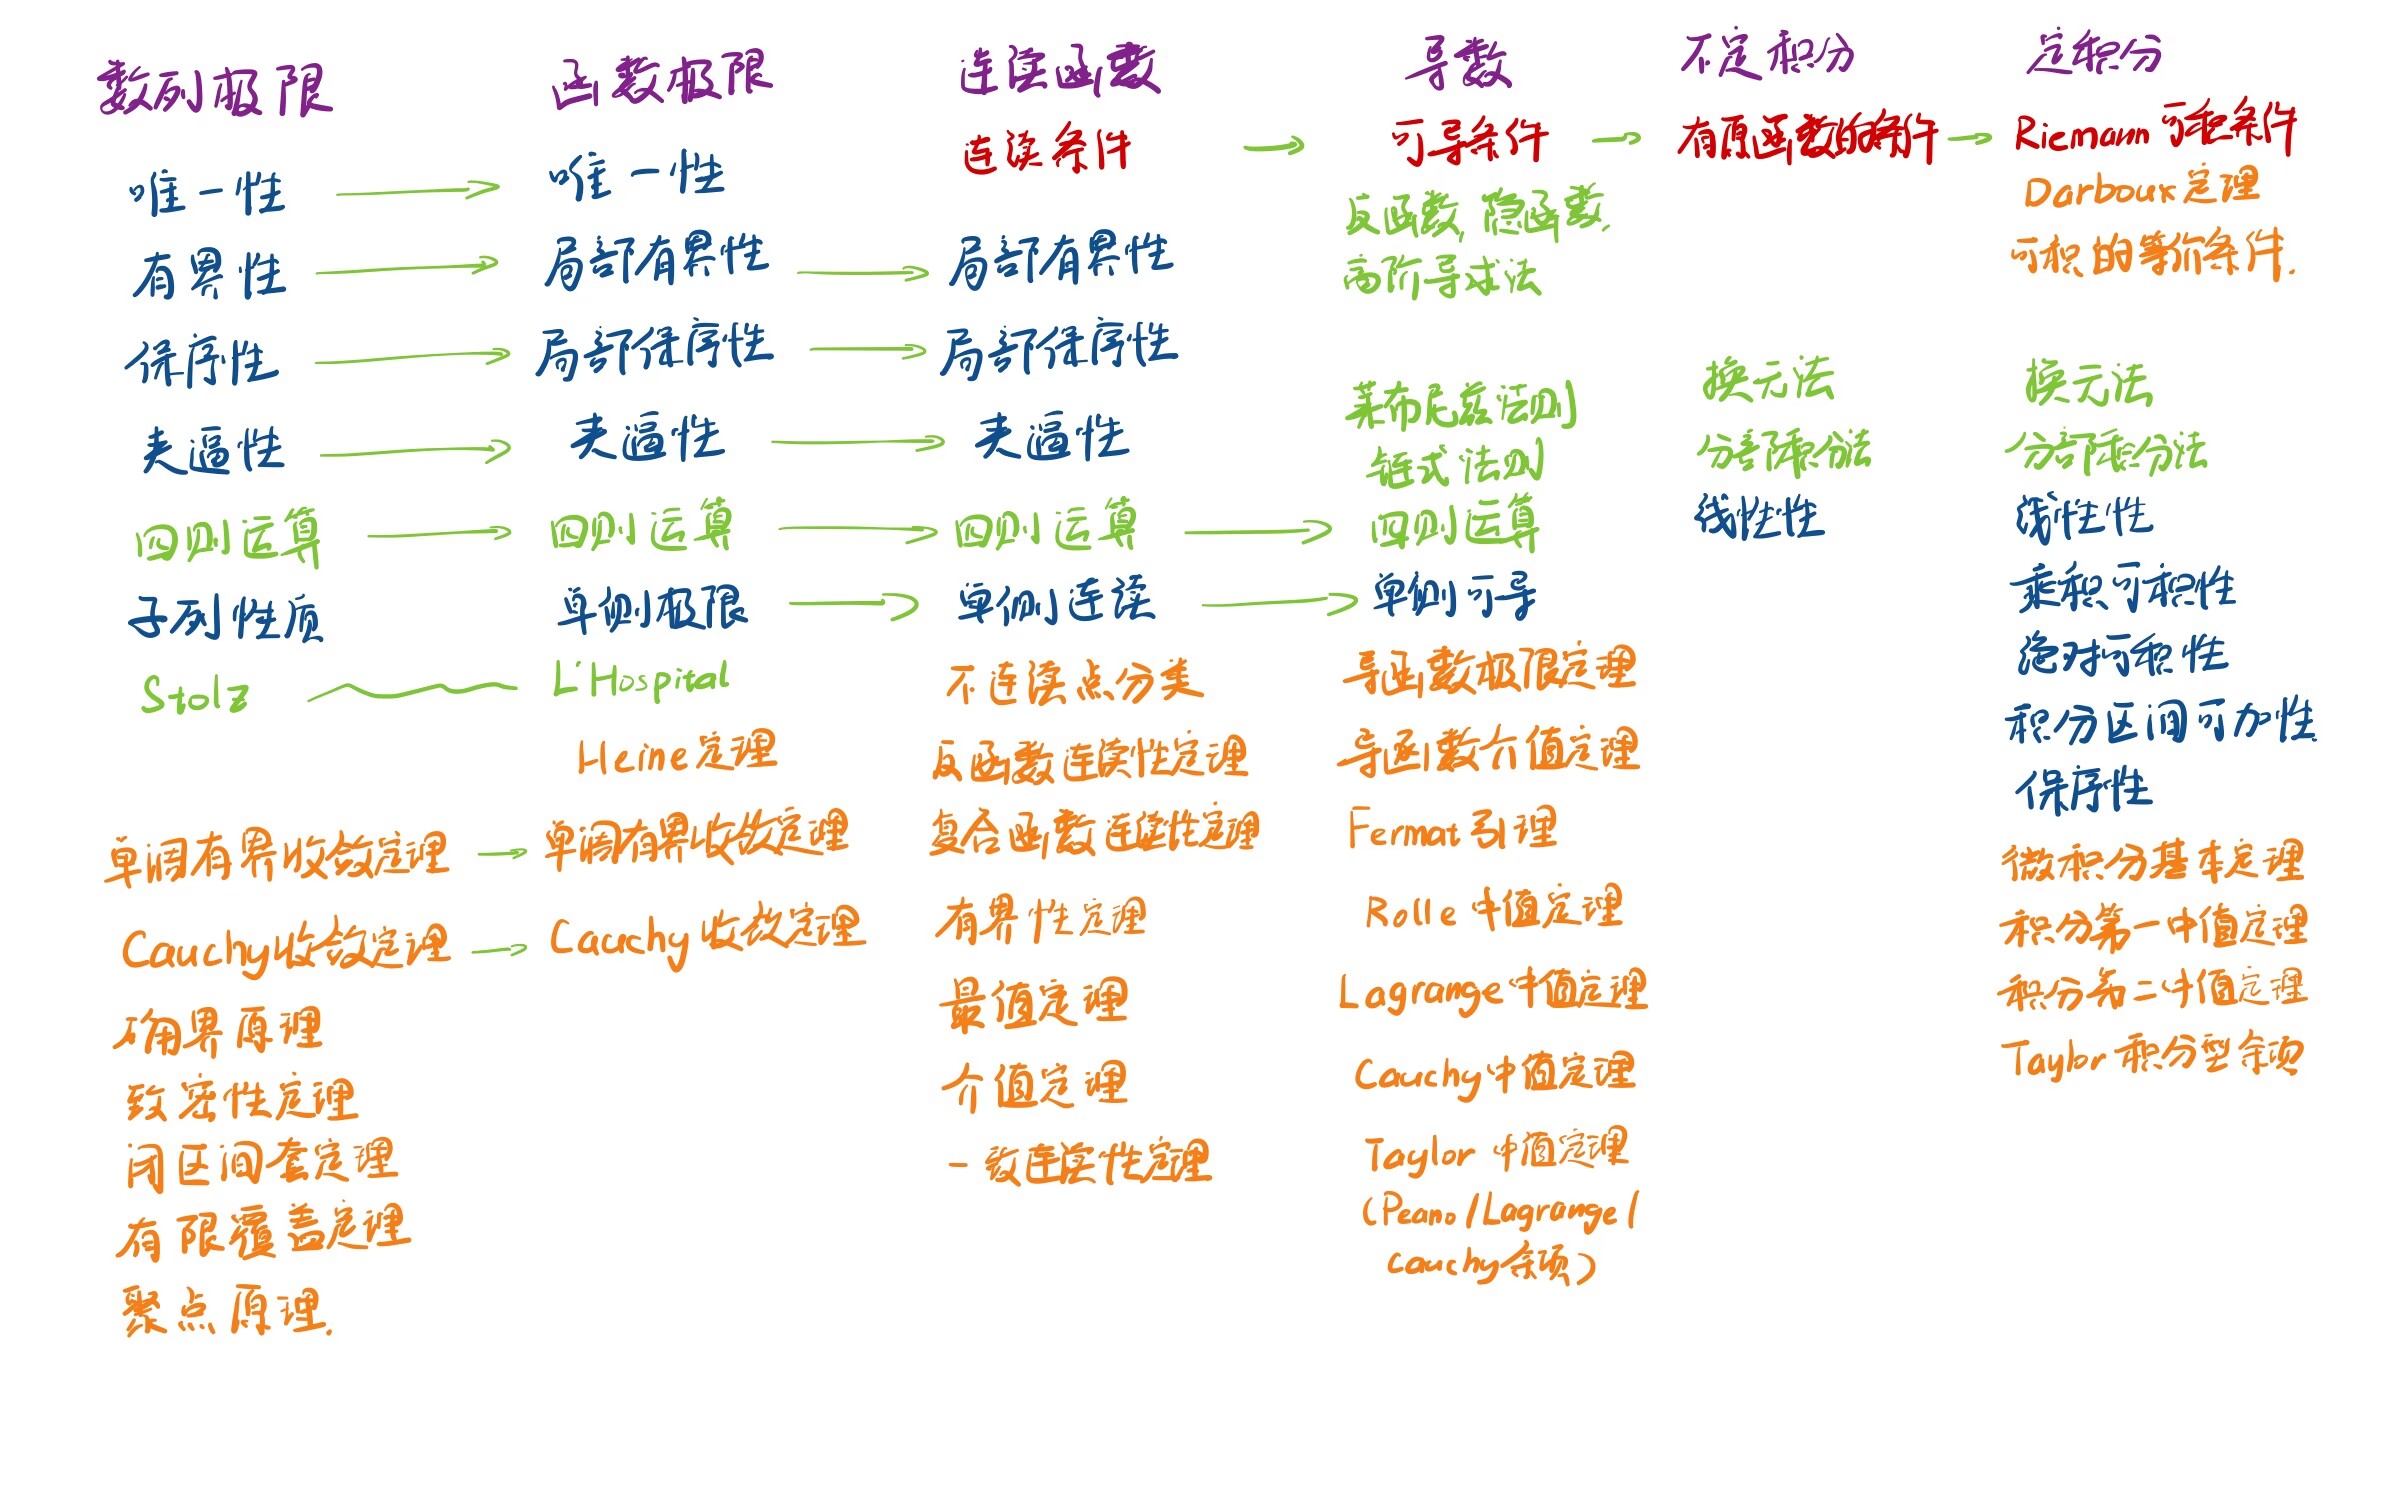 数列极限
唯一性
有界性
保序性
夹逼性
四则运算
子列性质
Stolz
单调有界收敛定理
Cauchy收敛定理
确界原理
致密性定理
闭区间套定理
有限覆盖定理
聚点原理.
函数极限
唯一性
局部有界性
局部保序性
夹逼性
四则运算
单侧极限
L'Hospital
Heine定理
单调有界收敛定理
Cauchy收敛定理
连续函数
连续条件
局部有界性
局部保序性
夹逼性
四则运算
单侧连续
不连续点分类
反函数连续性定理
复合函数连续性定理
有界性定理
最值定理
介值定理
一致连续性定理
导数
可导条件
反函数,隐函数,
高阶导求法
莱布尼兹法则
链式法则
四则运算
单侧可导
导函数极限定理
导函数介值定理
Fermat引理
Rolle中值定理
Lagrange中值定理
Cauchy中值定理
Taylor中值定理
(Peano/Lagrange/
Cauchy余项)
不定积分
有原函数的条件
换元法
分部积分法
线性性
定积分
Riemann可积条件
Darboux定理
可积的等价条件.
换元法
分部积分法
线性性
乘积可积性
绝对可积性
积分区间可加性
保序性
微积分基本定理
积分第一中值定理
积分第二中值定理
Taylor积分型余项